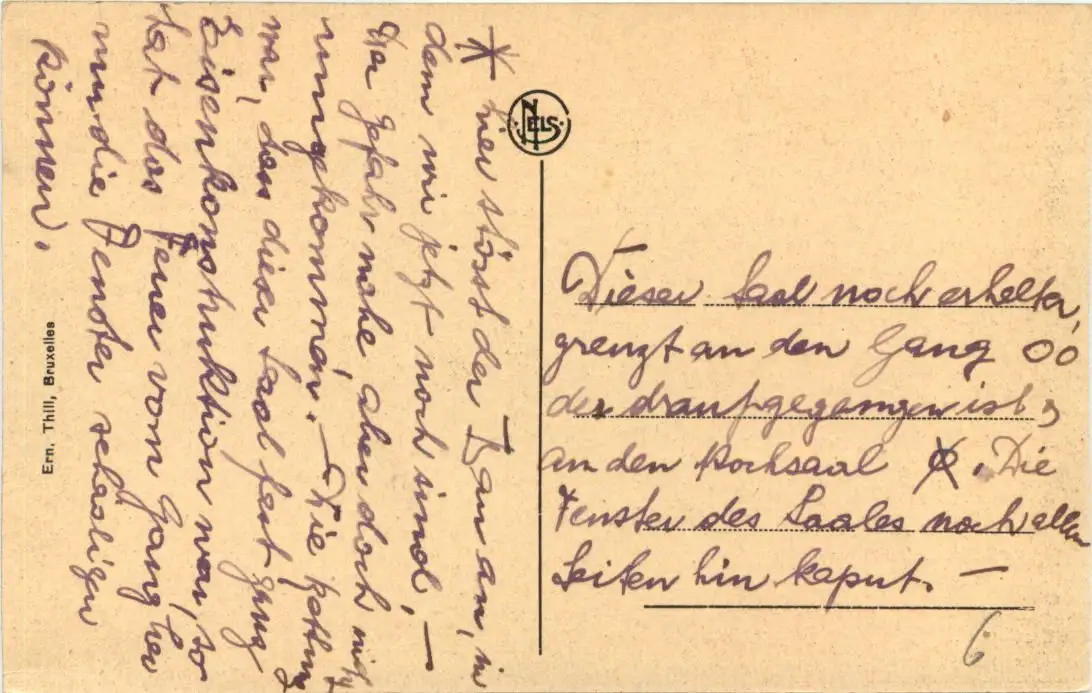 * hier stösst der Bau an, in
dem wir jetzt noch sind, —
der Gefahr nahe, aber doch nicht
umgekommen. — Die Rettung
war, dass dieser Saal fast ganz
Eisenkonstruktion war, so
hat das Feuer vom Gang her
nur die Fenster schädigen
können.
Ern. Thill, Bruxelles
NELS
Dieser Saal noch erhalten,
grenzt an den Gang OO
der draufgegangen ist,
an den Kochsaal X. Die
Fenster des Saales nach allen
Seiten hin kaput. —
6